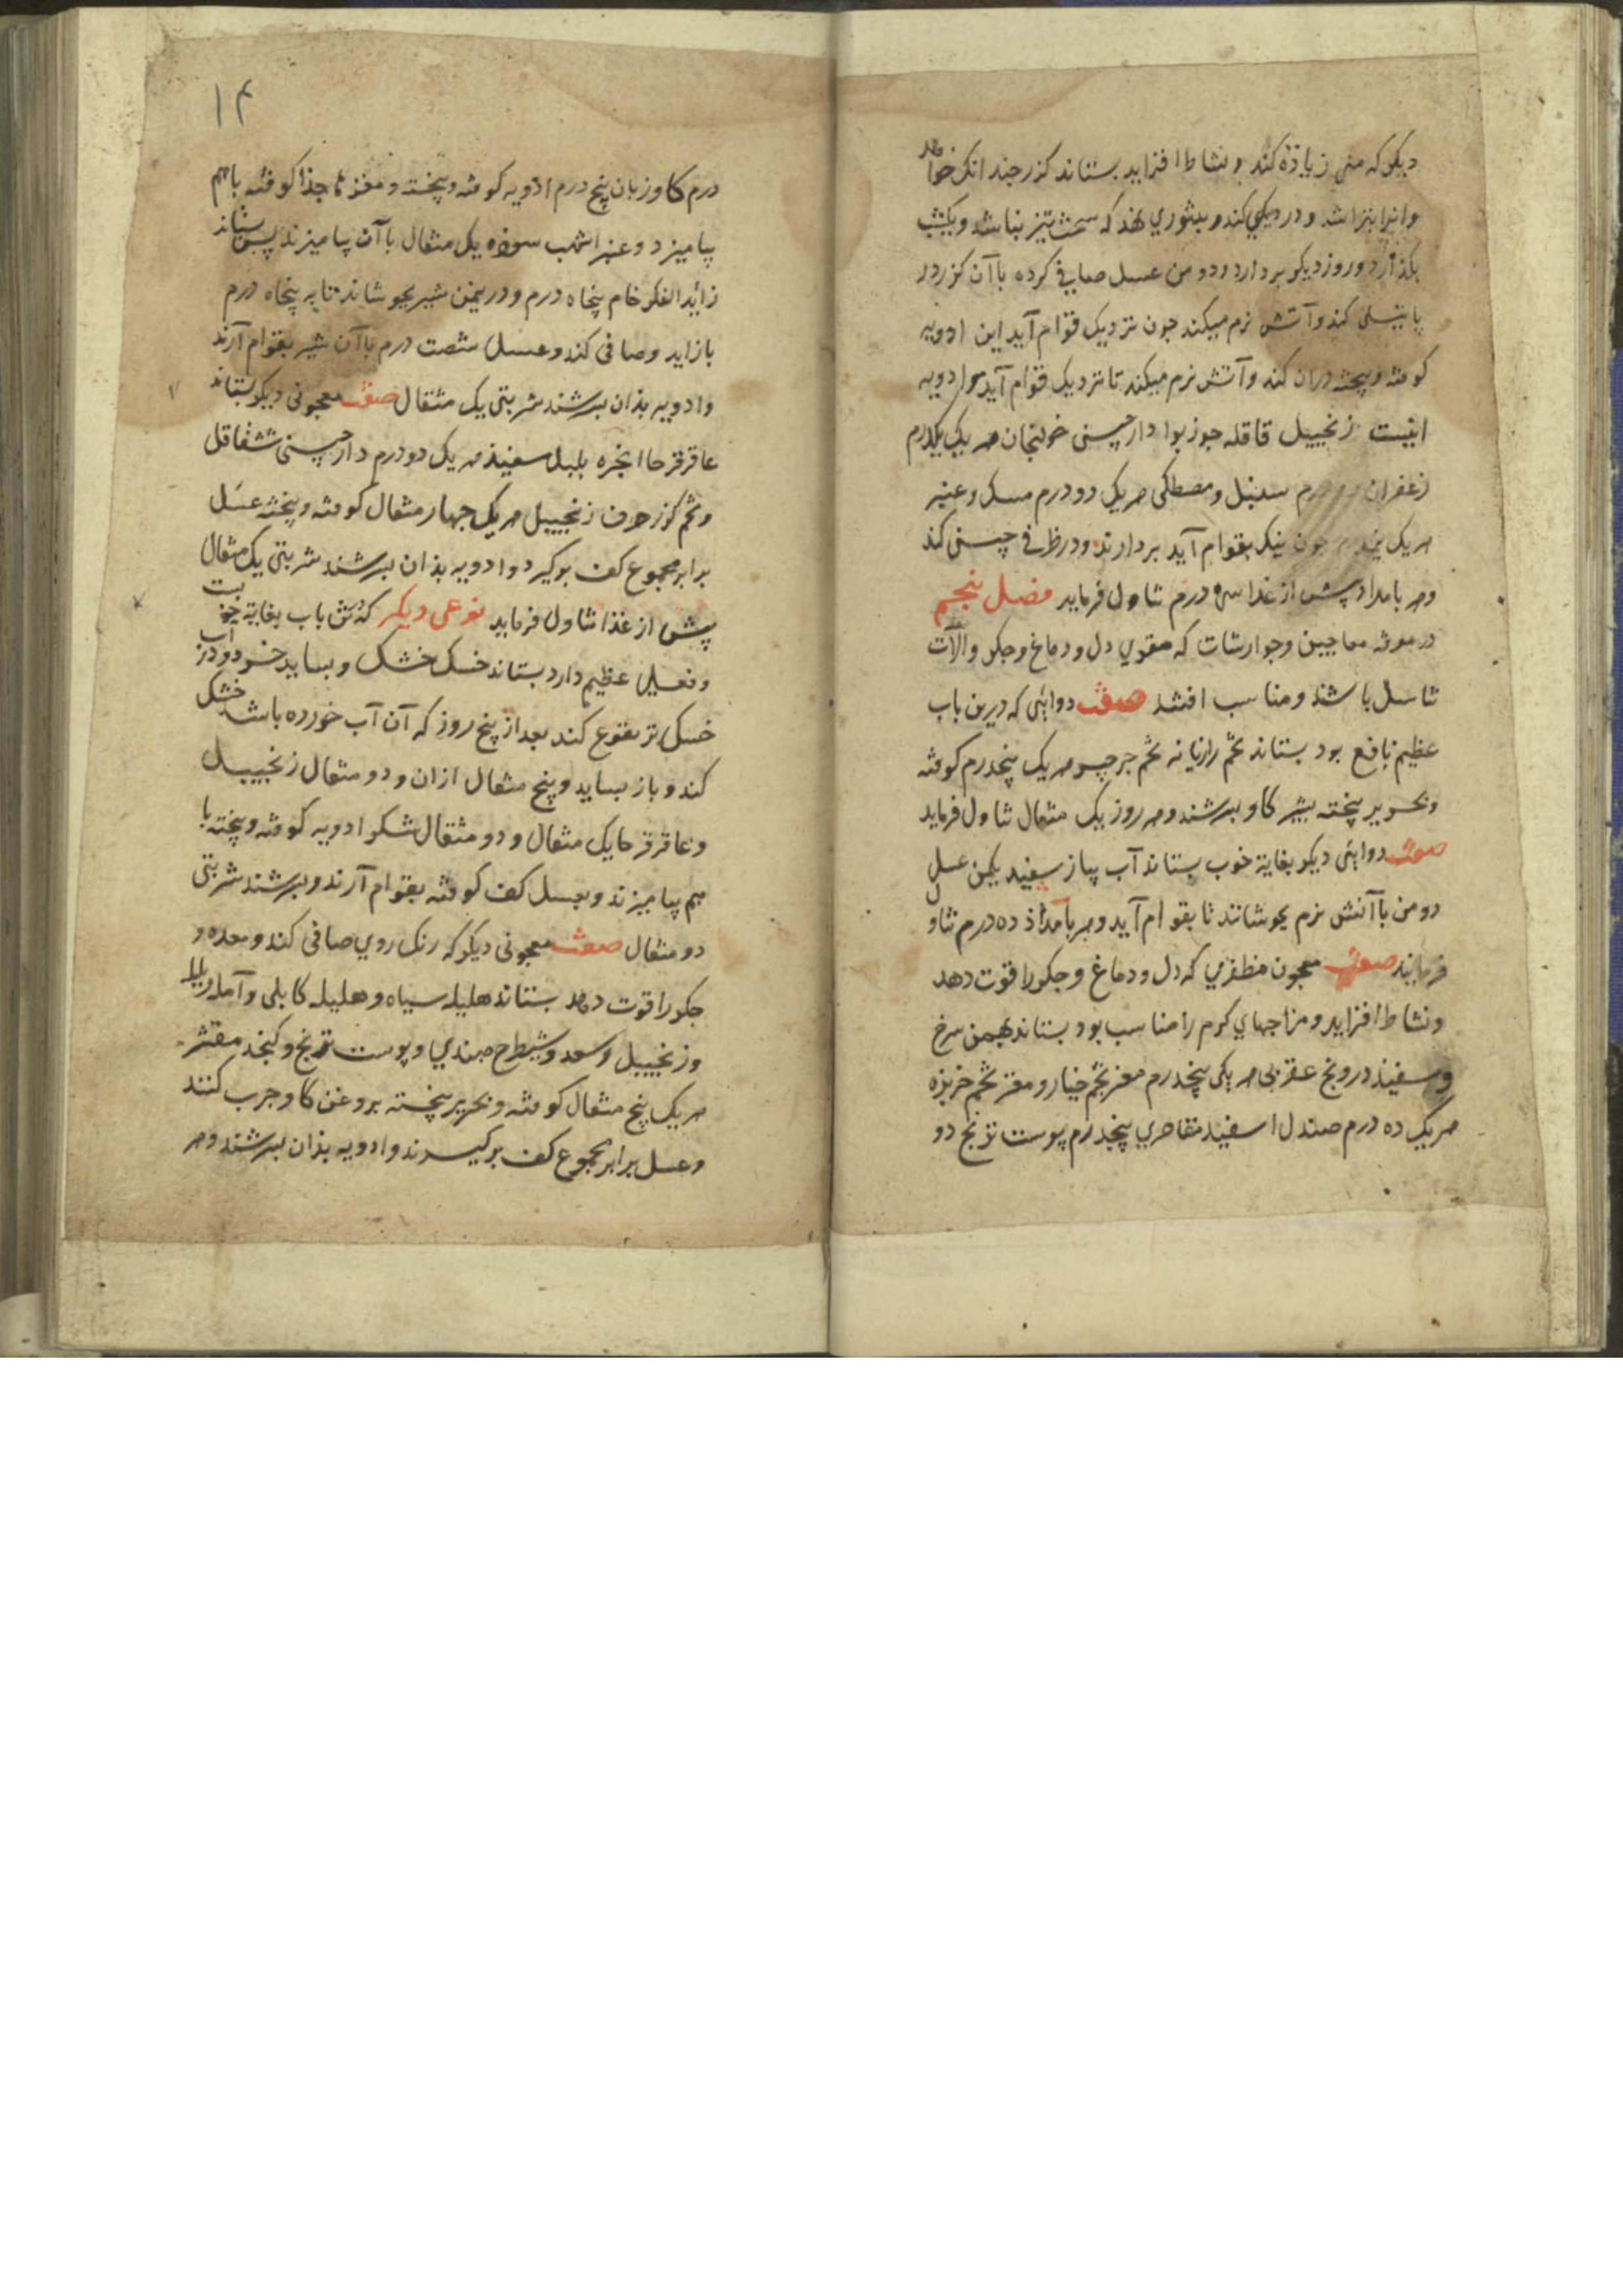 دیکر که منی زیاذه کند و نشاط افزاید بستاند کزر چندانک خواهد
وانرا بتراشد و در دیکی کند و بتنوری نهد که سخت تیز نباشد و یکشب
بکذارد و روز دیکر بردارد و دو من عسل صافی کرده باآن کزر در
پاتیلی کند وآتش نرم میکند جون نزدیک قوام آید این ادویه
کوفته و بیخته دران کند وآتش نرم میکند تا نزدیک قوام آید ادویه
اینست زنجبیل قاقله جوز بوا دارچینی خولنجان هریک یکدرم
زعفران درم سنبل و مصطکی هریک دو درم مسک و عنبر
هریک نیم جون نیک بقوام آید بردارند و در ظرفی چینی کند
وهر بامداد پیش از غذا سه درم تناول فرماید فصل پنجم
در معرفه معاجین وجوارشات که مقوی دل و دماغ و جکر والات
تناسل باشد و مناسب افتد صفت دوایی که درین باب
عظیم نافع بود بستاند تخم رازیانه تخم جرجیر هریک پنجدرم کوفته
وبحریر بیخته بشیر کاو بسرشند و هر روز یک مثقال تناول فرماید
صفت دوایی دیکر بغایة خوب بستاند آب پیاز سفید یکمن عسل
دو من باآتش نرم بجوشانند تا بقوام آید و هر بامداذ ده درم تناول
فرمایند صفت معجون مظفری که دل و دماغ و جکر را قوت دهد
ونشاط افزاید و مزاجهای کرم را مناسب بود بستاند بهمن سرخ
وسفید درونج عقربی هریکی پنجدرم مغز تخم خیار و مغز تخم خربزه
هریک ده درم صندل اسفید مقاصری پنجدرم پوست ترنج دو
۱۴
درم کاوزبان پنج درم ادویه کوفته وبیخته و مغزها جذا کوفته باهم
بیامیزد و عنبر اشهب سوده یک مثقال باآن بیامیزند پس بستاند
زائید الفکر خام پنجاه درم و در یکمن شیر بجوشاند تا به پنجاه درم
بازاید وصافی کند وعسل شصت درم باآن شیر بقوام آرند
وادویه بذان بسرشند شربتی یک مثقال صفت معجونی دیکر بستاند
عاقرقرحا انجره بلبل سفیذ هریک دو درم دارچینی شقاقل
وتخم کزر حرف زنجبیل هریک جهار مثقال کوفته وبیخته عسل
برابر مجموع کف بوکیرد وادویه بذان بسرشند شربتی یک مثقال
پیش از غذا تناول فرماید نوعی دیکر کدرین باب بغایة خوبست
وفعلی عظیم دارد بستاند خسک خشک و بساید خرد و در آب
خسک تر نقوع کند بعد از پنج روز که آن آب خورده باشد خشک
کند و باز بساید و پنج مثقال ازان و دو مثقال زنجبیل
وعاقرقرحا یک مثقال و دو مثقال شکر ادویه کوفته وبیخته با
هم بیامیزند وبعسل کف کوفته بقوام آرند و بسرشند شربتی
دو مثقال صفت معجونی دیکر که رنک روی صافی کند ومعده و
جکر را قوت دهد بستاند هلیله سیاه و هلیله کابلی وآمله وبلیله
وزنجبیل وسعد وشیطرج هندی و پوست ترنج و کنجد مقشر
هریک پنج مثقال کوفته وبحریر بیخته بروغن کاو چرب کنند
وعسل برابر مجموع کف برکیرند وادویه بذان بسرشند و هر